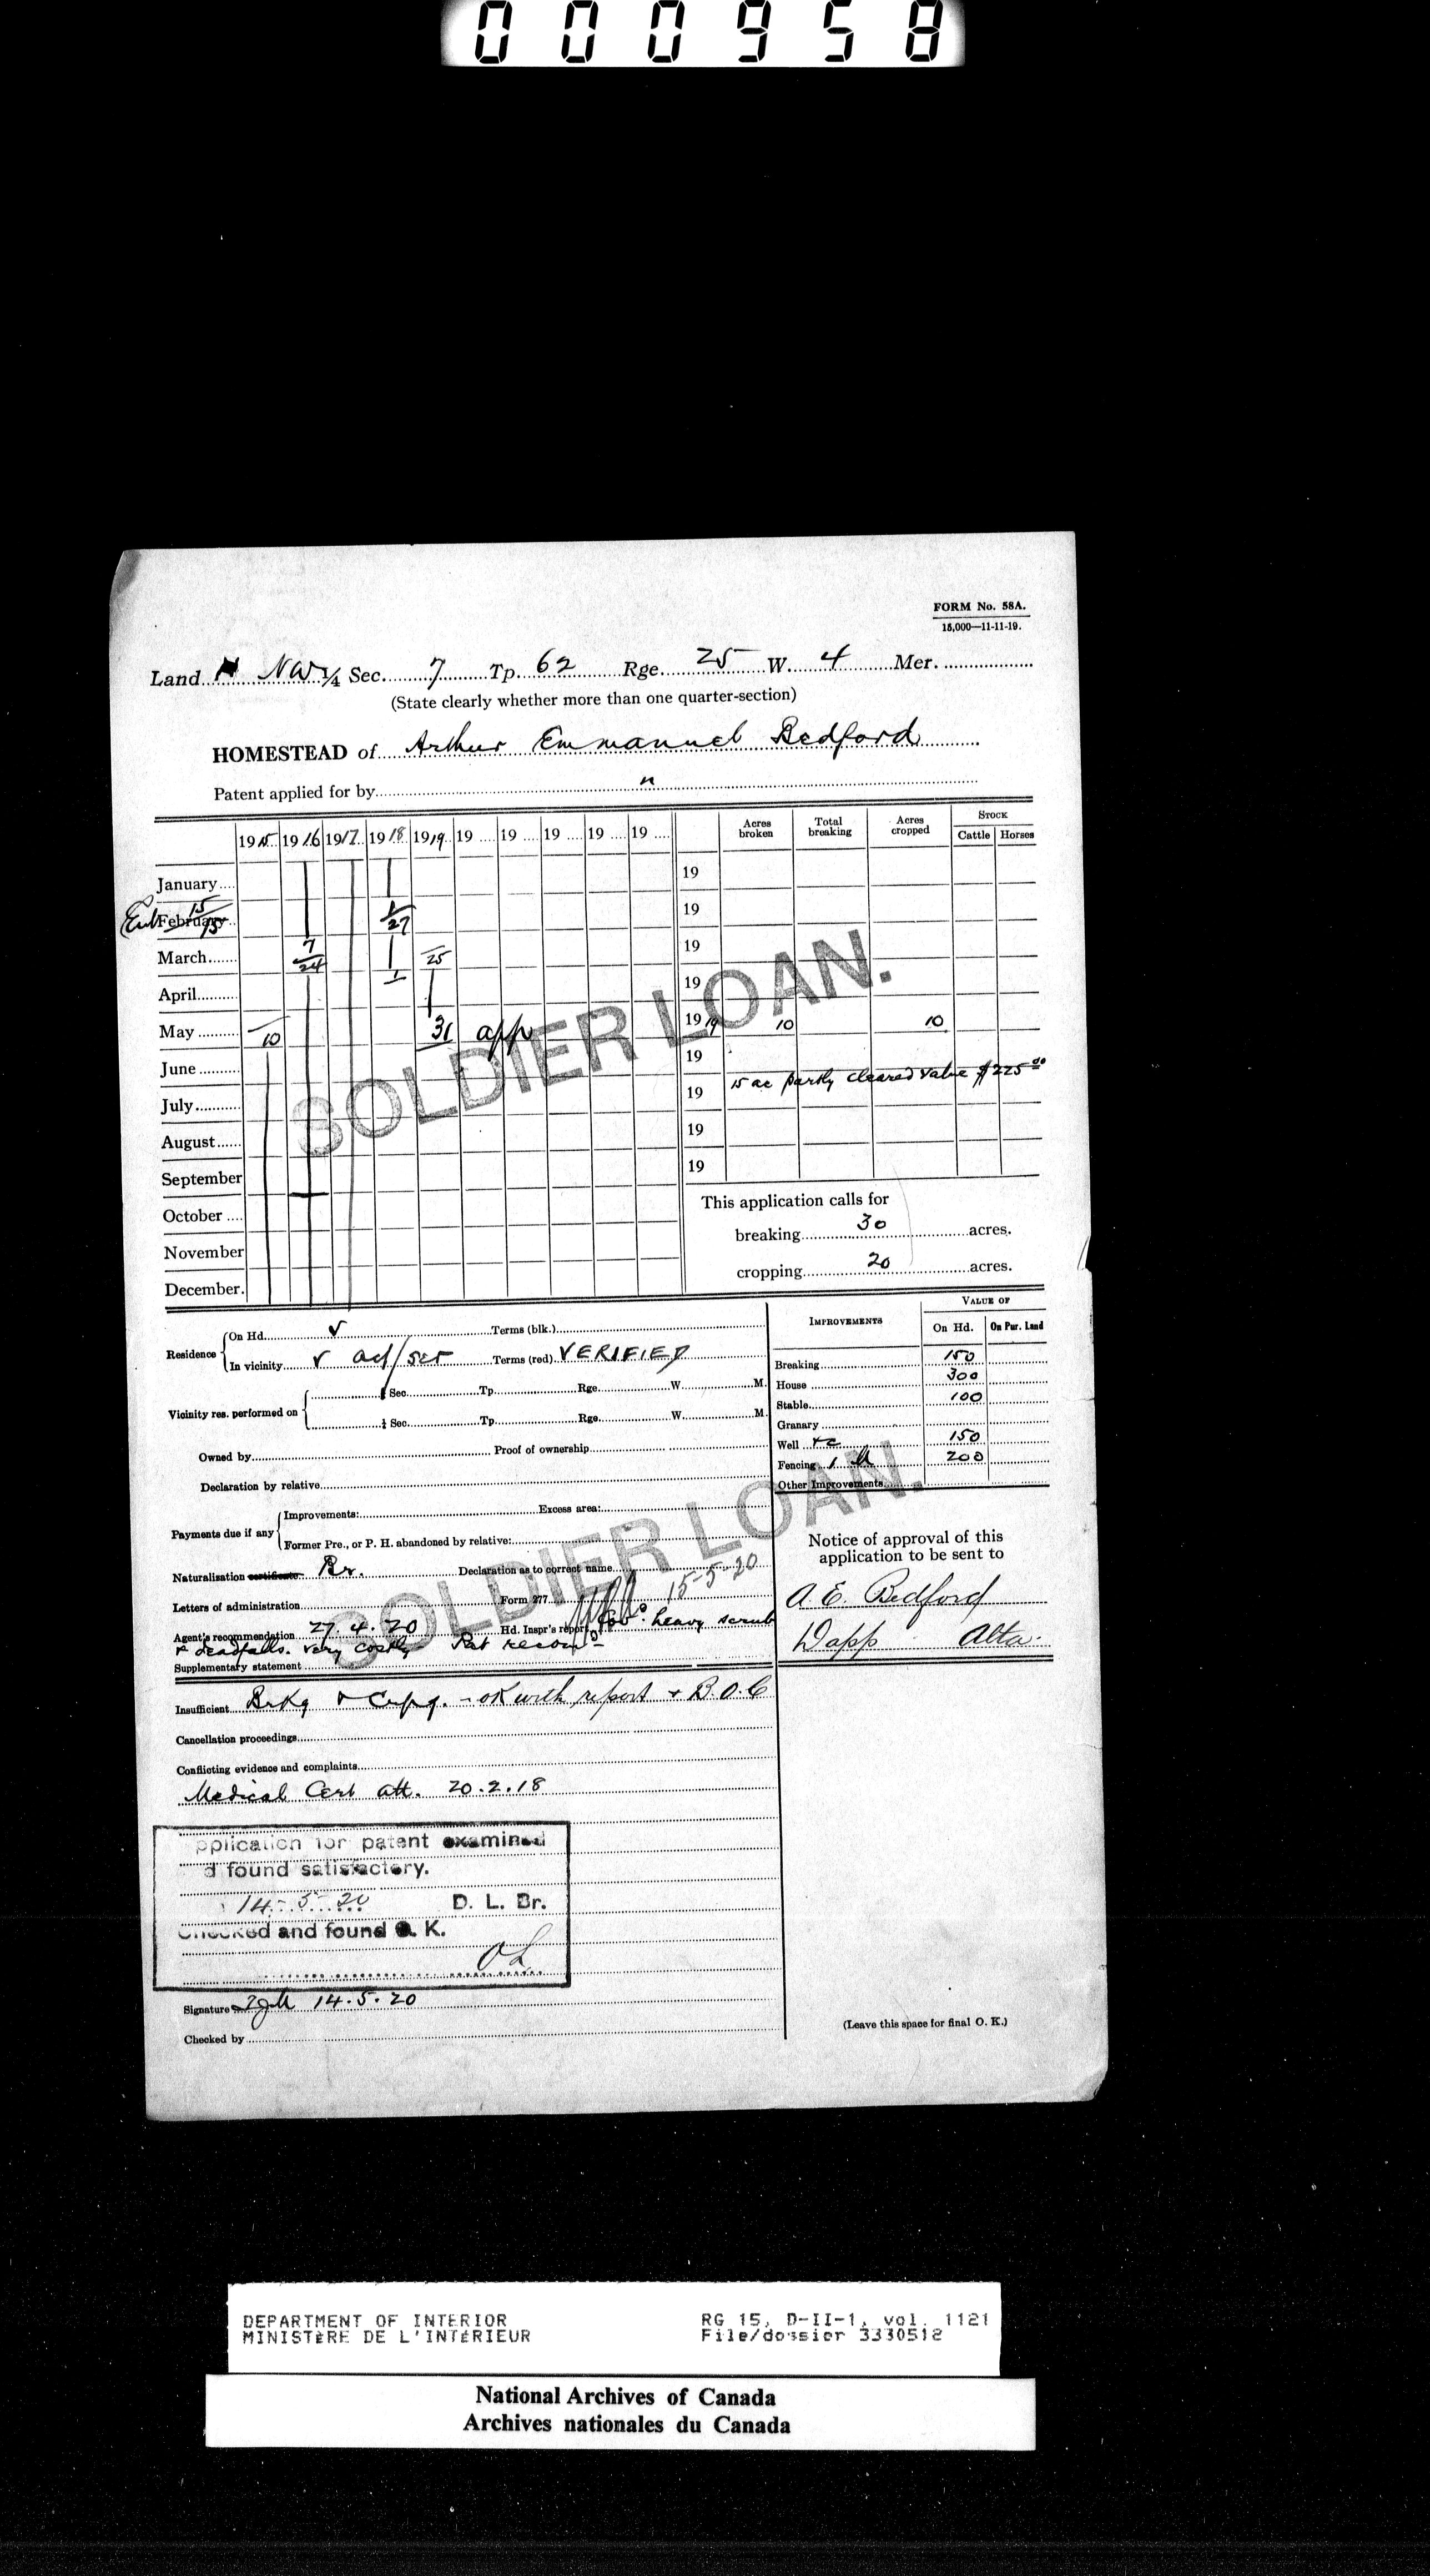 000958
FORM No. 58A.
15,000—11-11-19.
Land NW 1/4 Sec. 7 Tp. 62 Rge. 25 W. 4 Mer.
(State clearly whether more than one quarter-section)
HOMESTEAD of Arthur Emmanuel Bedford
Patent applied for by "
1915 1916 1917 1918 1919 19 19 19 19 19 Acres broken Total breaking Acres cropped STOCK Cattle Horses
January 19
February 15/15 1/27 19
March 7/24 25 19
April 1 19
May 10 31 app 1919 10 10
June 19
July 19 15 ac partly cleared value $225.00
August 19
September 19
October
November
December.
SOLDIER LOAN.
This application calls for
breaking 30 acres.
cropping 20 acres.
Residence
On Hd. Terms (blk.)
In vicinity Terms (red) VERIFIED
Vicinity res. performed on
¼ Sec. Tp. Rge. W. M.
¼ Sec. Tp. Rge. W. M.
Owned by Proof of ownership
Declaration by relative
Payments due if any
Improvements: Excess area:
Former Pre., or P. H. abandoned by relative:
Naturalisation certificate Br. Declaration as to correct name
Letters of administration Form 277 15-5-20
Agent's recommendation 27.4.20 Hd. Inspr's report heavy scrub
& deadfalls. very costly Pat recom
Supplementary statement
SOLDIER LOAN.
IMPROVEMENTS VALUE OF
On Hd. On Pur. Land
Breaking 150
House 300
Stable 100
Granary
Well 150
Fencing 200
Other Improvements
Notice of approval of this
application to be sent to
A. E. Bedford
Dapp Alta.
Insufficient Brkg & Crpg. - OK with report & B.O.C
Cancellation proceedings
Conflicting evidence and complaints
Medical Cert att. 20.2.18
pplication for patent examined
d found satisfactory.
14-5-20 D. L. Br.
Checked and found O. K.
OL
Signature 14.5.20
Checked by
(Leave this space for final O. K.)
DEPARTMENT OF INTERIOR
MINISTÈRE DE L'INTÉRIEUR
RG 15, D-II-1, vol. 1121
File/dossier 3330512
National Archives of Canada
Archives nationales du Canada